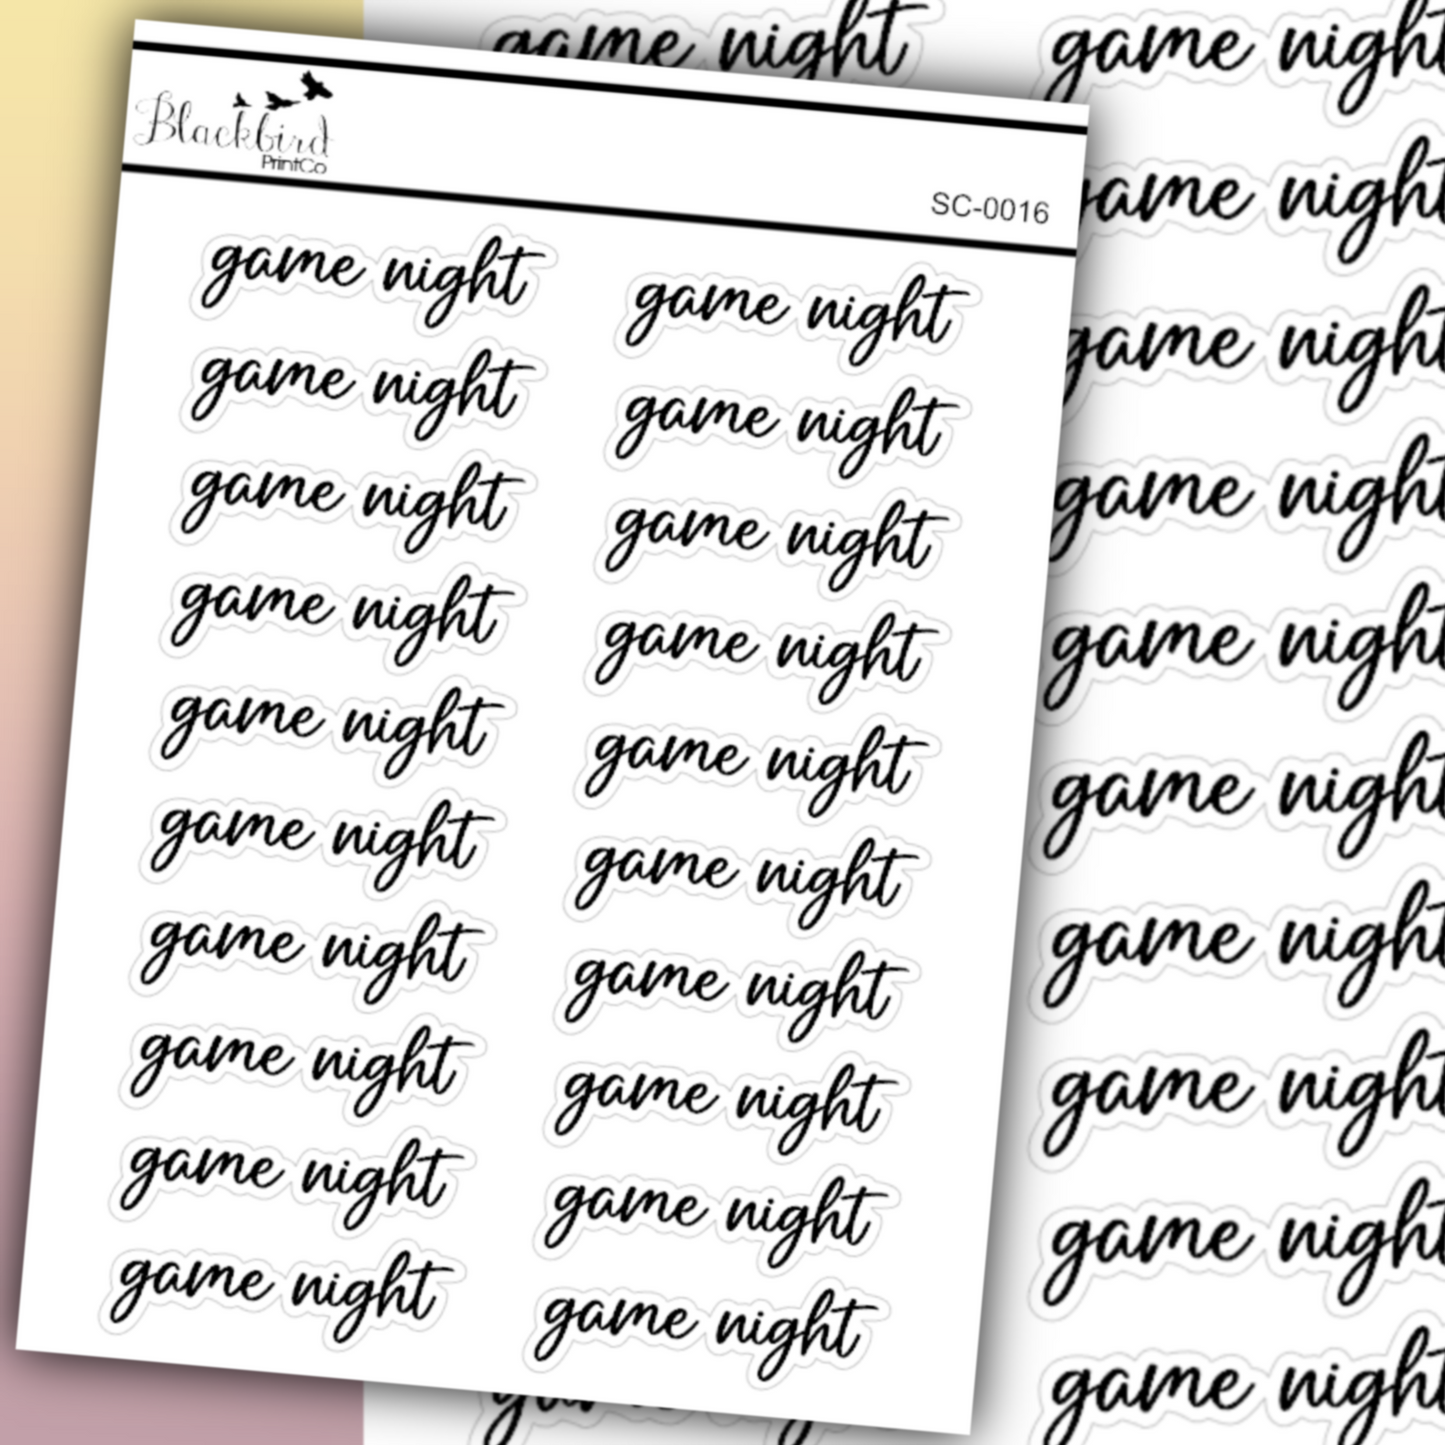 Blackbird
PrintCo
SC-0016
game night game night
game night game night
game night game night
game night game night
game night game night
game night game night
game night game night
game night game night
game night game night
game night game night
game night game night
game night
game night
game night
game night
game night
game night
game night
game night
game night